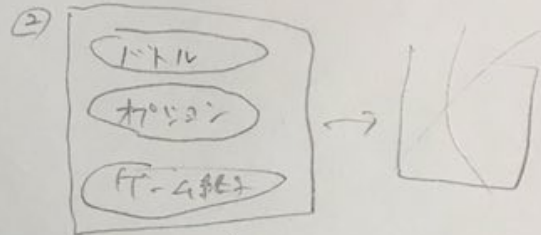 ②
バトル
オプション
ゲーム終了